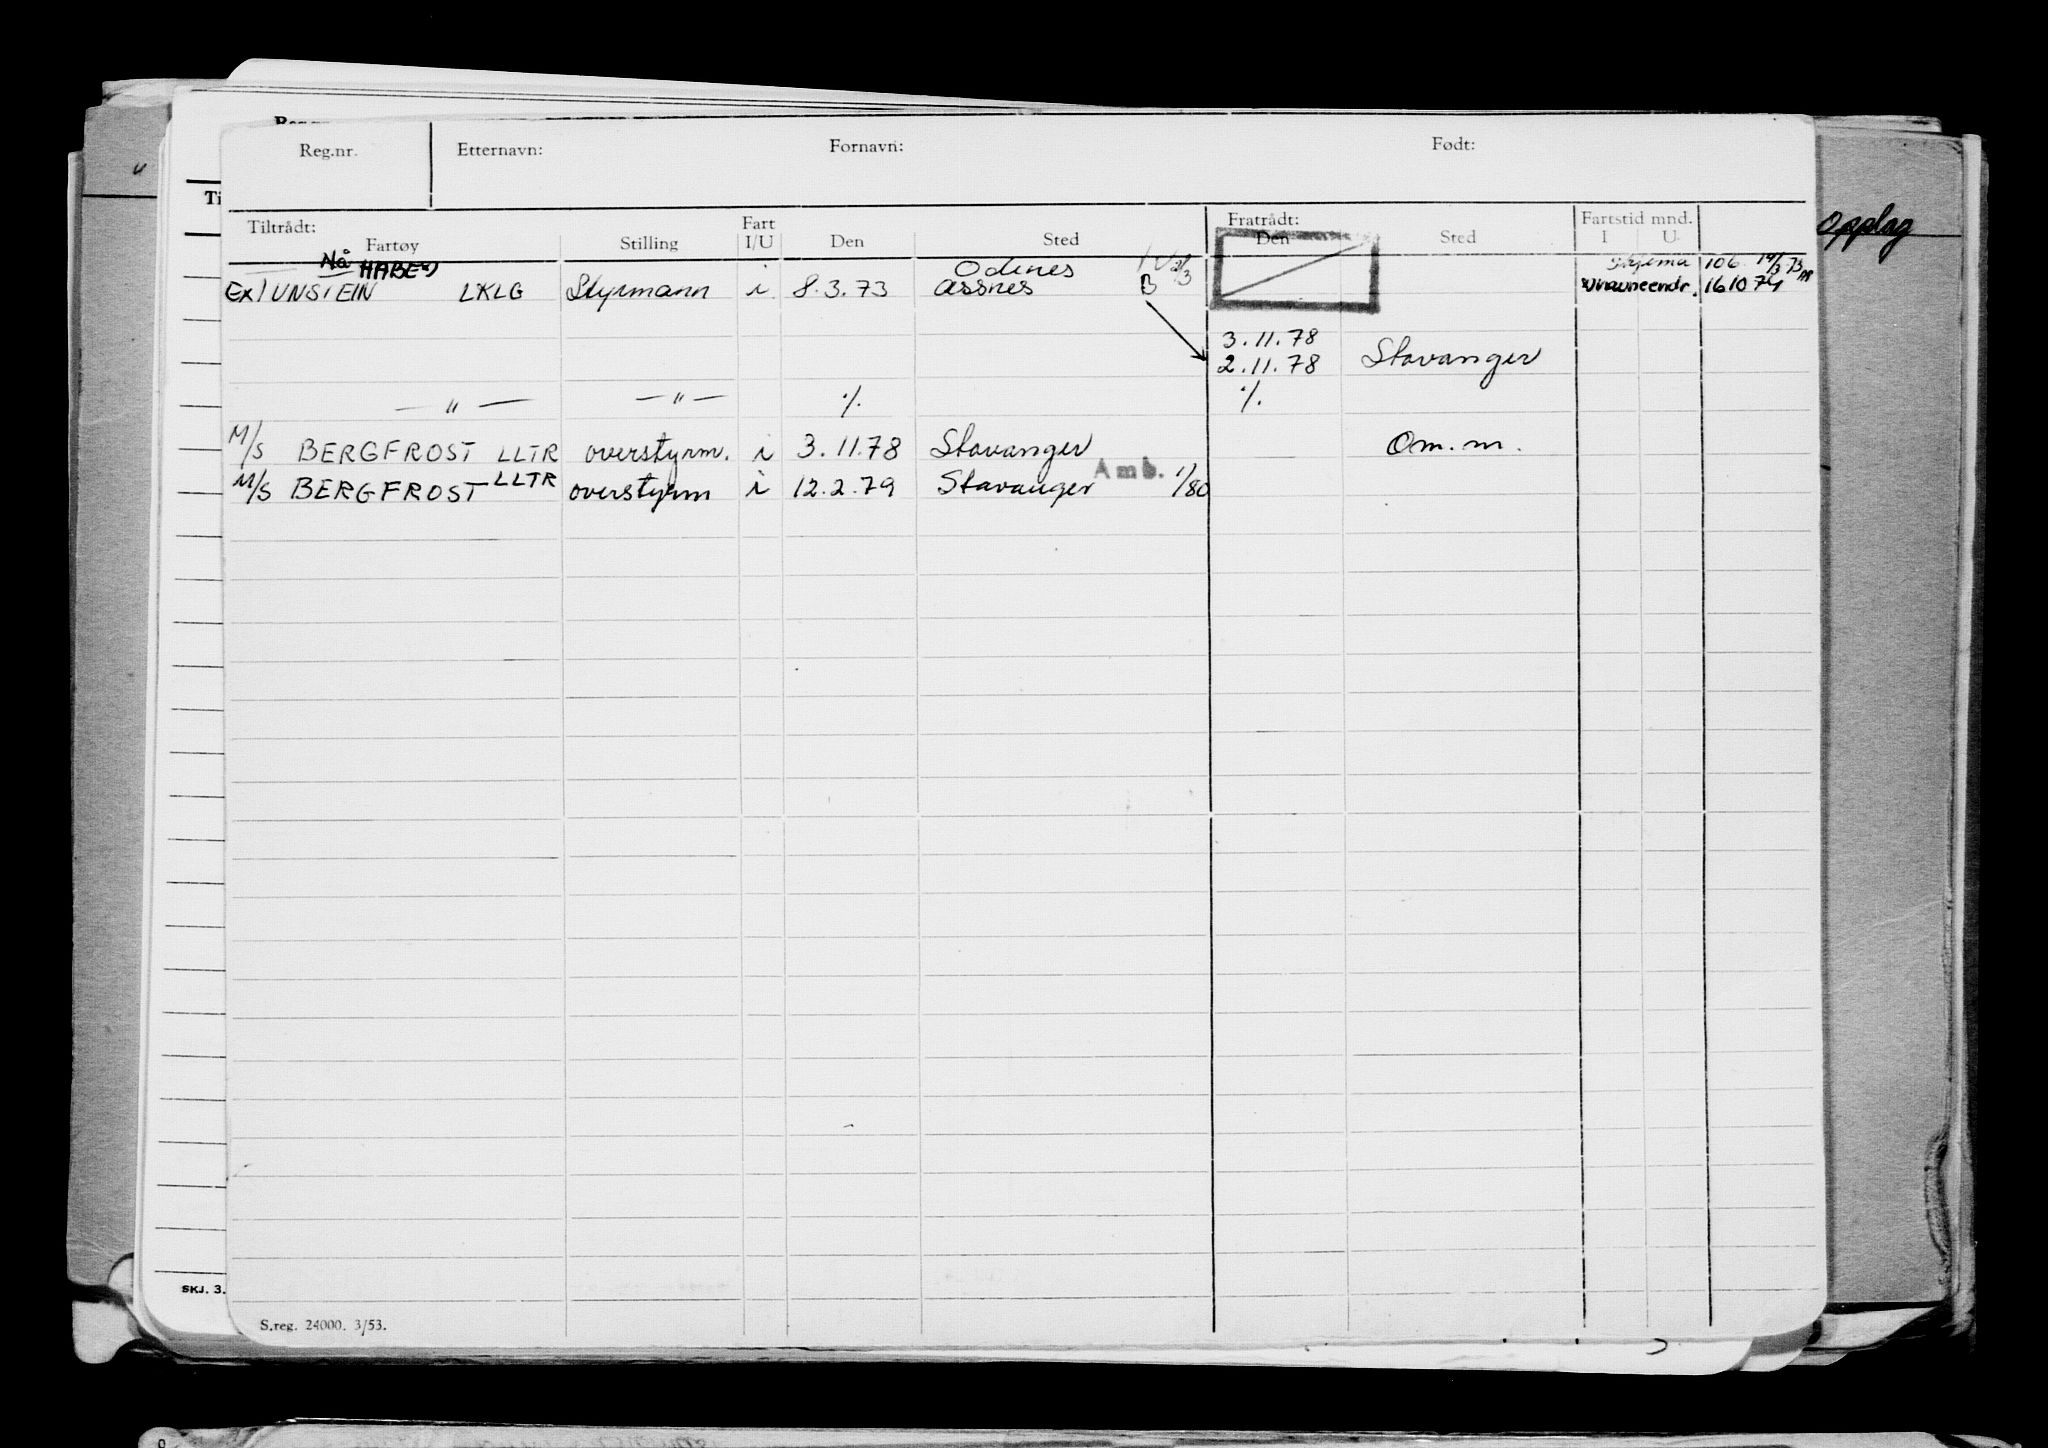 Reg.nr. Etternavn: Fornavn: Født:
Tiltrådt: Fart Fratrådt: Fartstid mnd.
Fartøy Stilling I/U Den Sted Den Sted I U
Nå Odines 106
Ex LKLG Styrmann i 8.3.73 Assnes B 161074
Opplag
3.11.78
2.11.78 Stavanger
— " — — " — ./. ./.
M/S BERGFROST LLTR overstyrm. i 3.11.78 Stavanger Om. m.
M/S BERGFROST LLTR overstyrm i 12.2.79 Stavanger Amb. 1/80
SKJ. 3.
S.reg. 24000. 3/53.